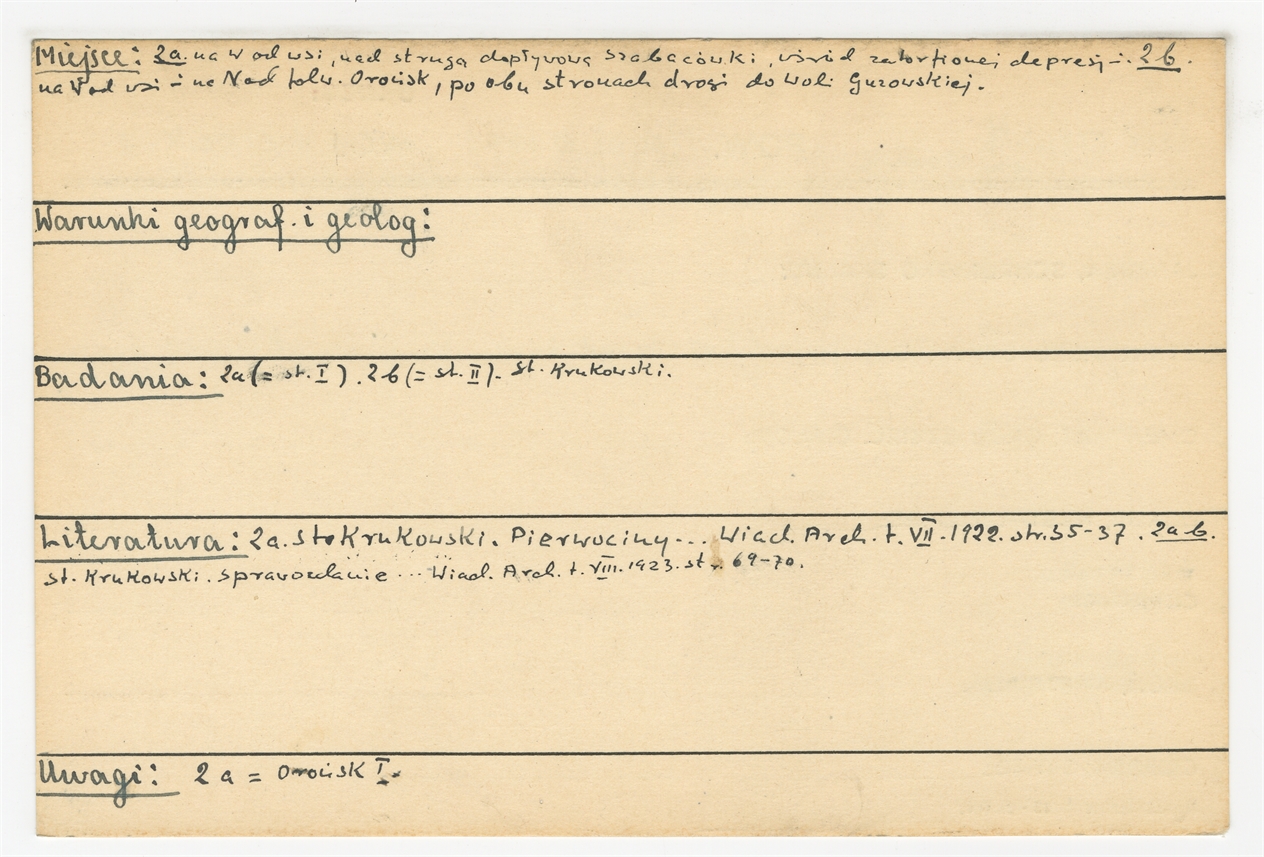 Miejsce: 2a. na W od wsi, nad strugą dopływową Szabasówki, wśród zatorfionej depresji. 2b.
na W od wsi i na N od folw. Orońsk, po obu stronach drogi do Woli Guzowskiej.
Warunki geograf. i geolog:
Badania: 2a (= st. I). 2b (= st. II). St. Krukowski.
Literatura: 2a. St. Krukowski. Pierwociny... Wiad. Arch. t. VII. 1922. str. 35-37. 2a-b.
St. Krukowski. Sprawozdanie... Wiad. Arch. t. VIII. 1923. str. 69-70.
Uwagi: 2a = Orońsk I.